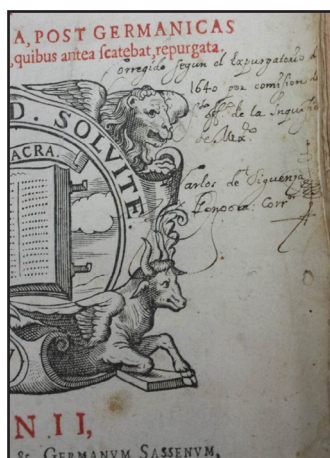 A, POST GERMANICAS
, quibus antea scatebat, repurgata.
Corregido segun el Expurgatorio de
1640 por comission d
Sto. offo. de la Inquisn
de Mexco.
D. SOLVITE.
ACRA.
Carlos de Siguenza
y Gongora: Corror
N II,
& GERMANVM SASSENVM,